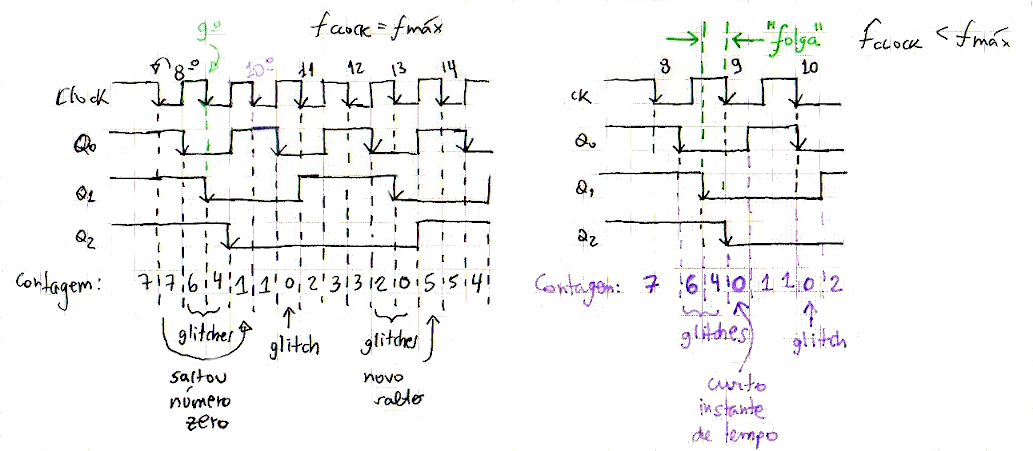 9º
f CLOCK = f máx
8º 10º 11 12 13 14
Clock
Q0
Q1
Q2
Contagem: 7 7 6 4 1 1 0 2 3 3 2 0 5 5 4
glitches
glitch
glitches
saltou
número
zero
novo
salto
"folga"
f CLOCK < f máx
8 9 10
CK
Q0
Q1
Q2
Contagem: 7 6 4 0 1 1 0 2
glitches
glitch
curto
instante
de tempo